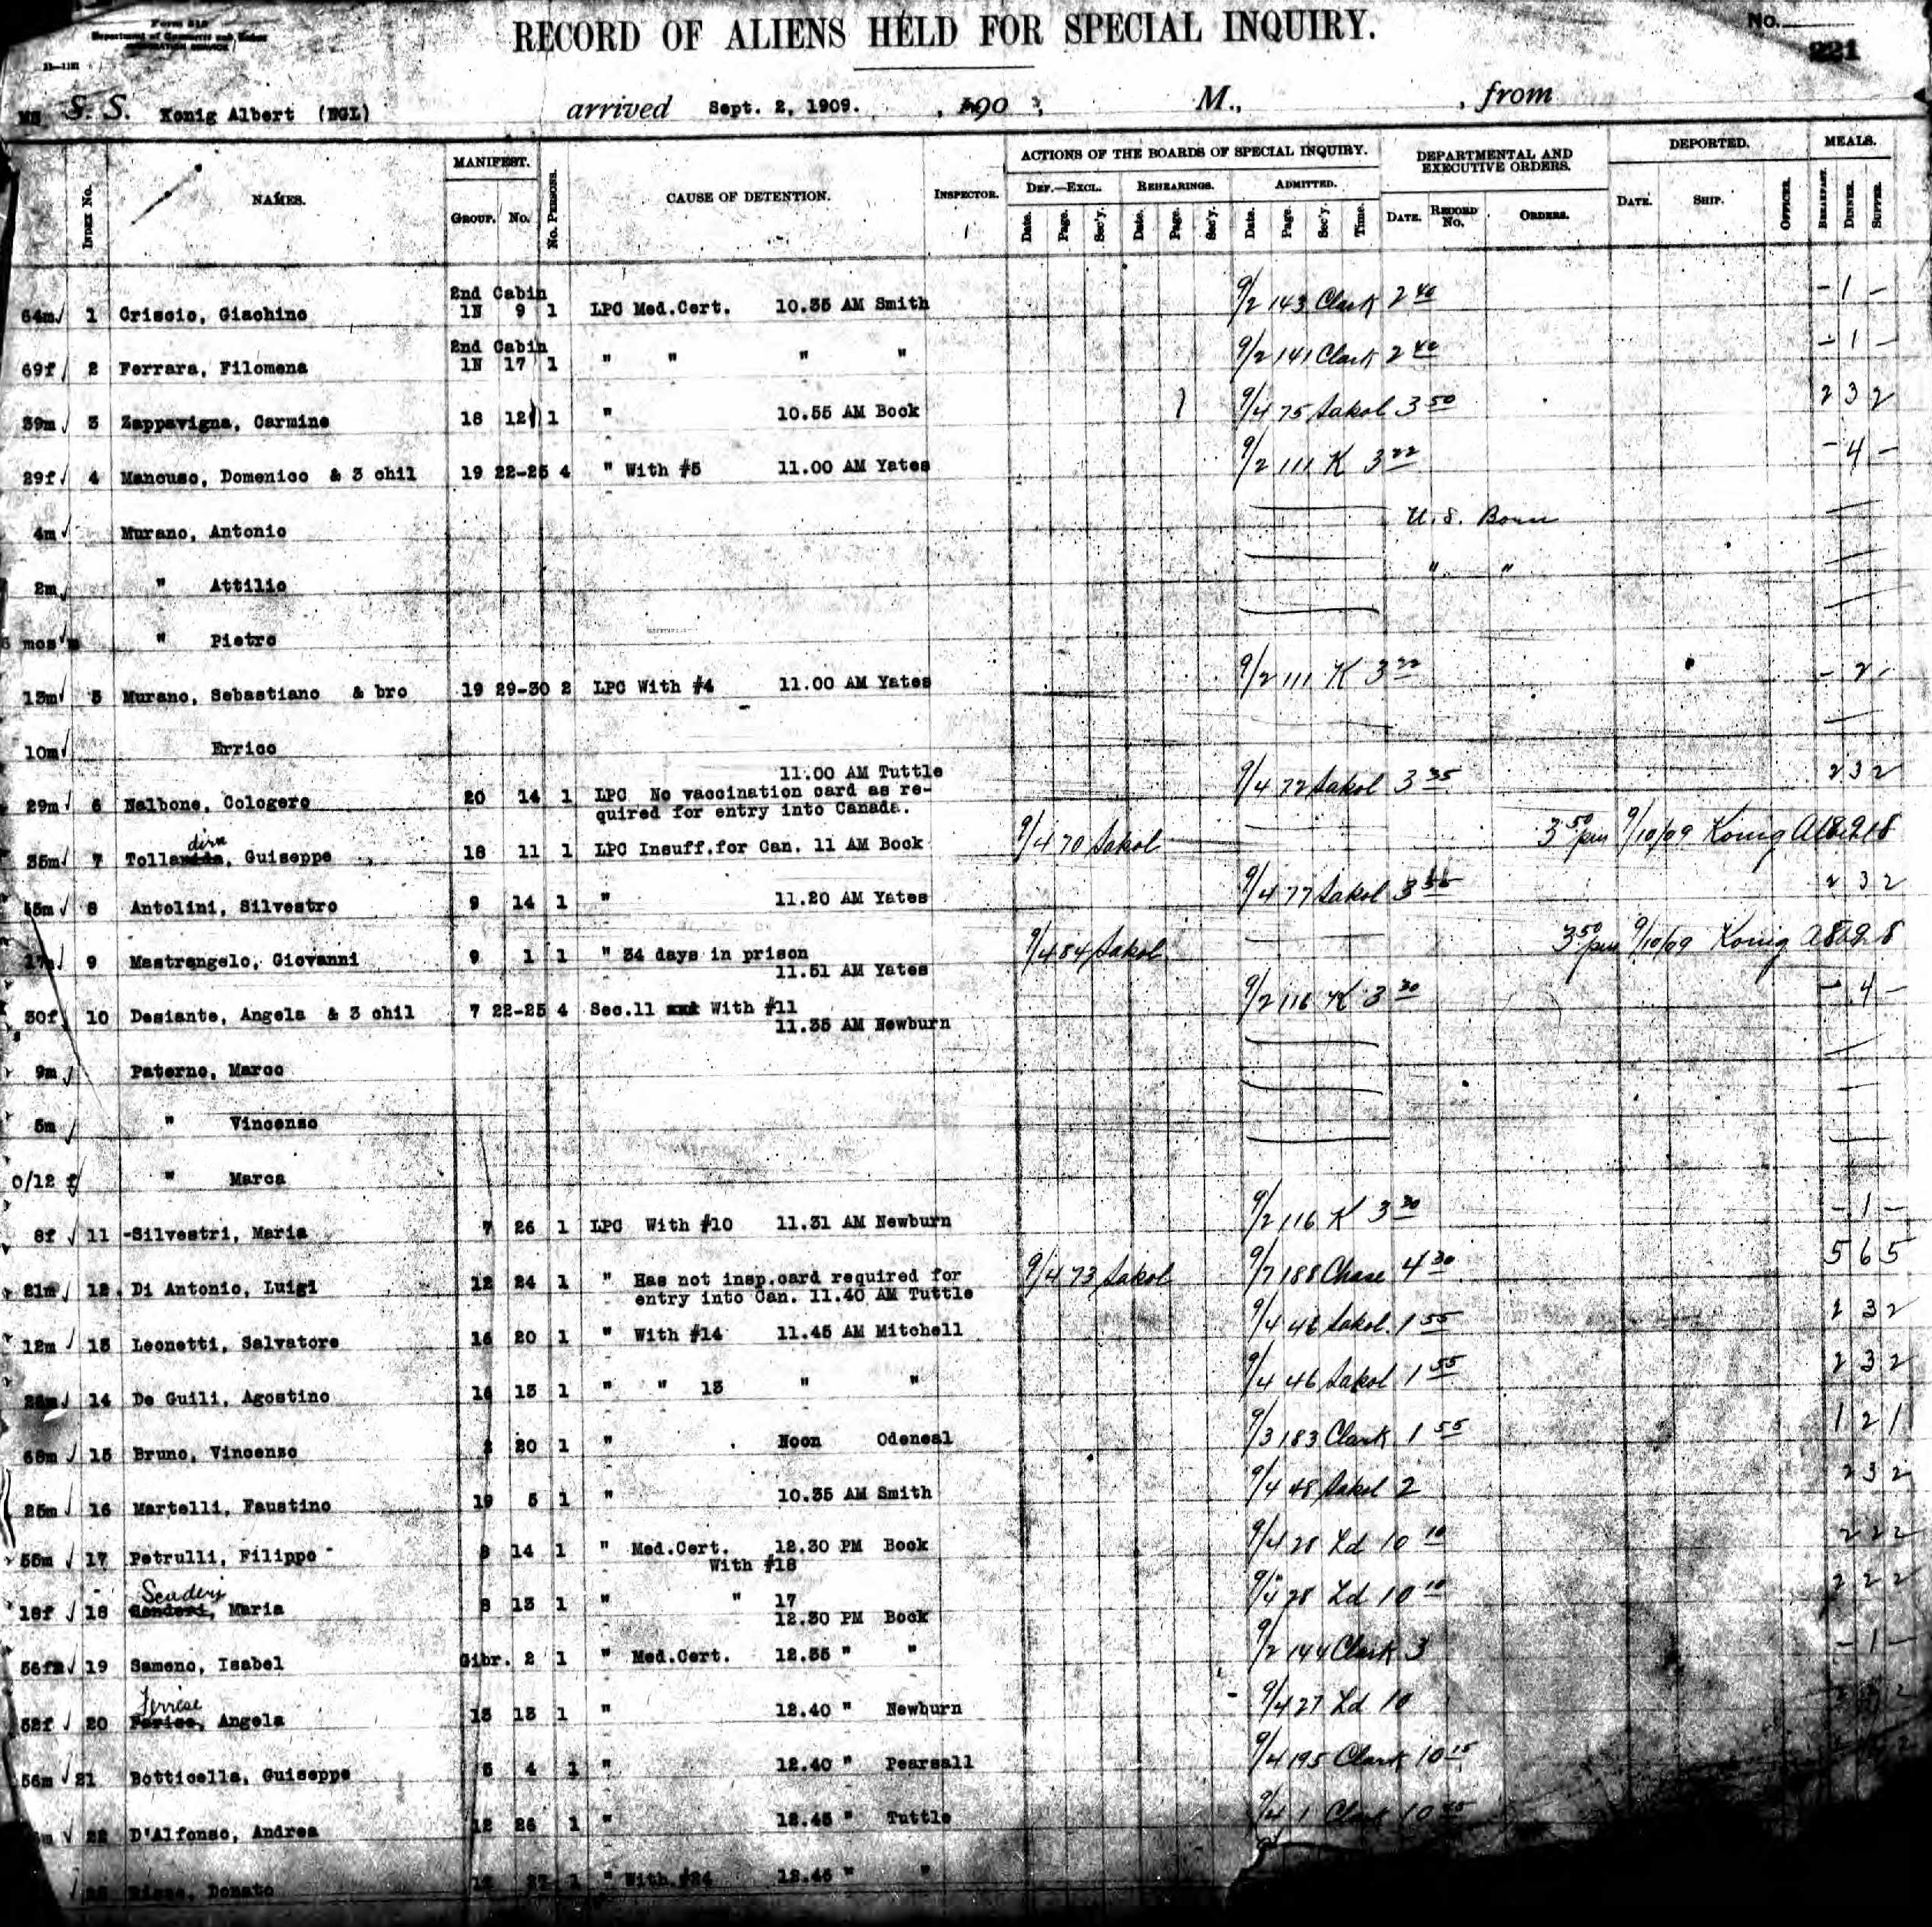 Form 519
Department of Commerce and Labor
IMMIGRATION SERVICE
RECORD OF ALIENS HELD FOR SPECIAL INQUIRY.
No.
221
S. S. Konig Albert (NGL) arrived Sept. 2, 1909. , 190 , M., , from
INDEX No. NAMES. MANIFEST. GROUP. No. No. PERSONS. CAUSE OF DETENTION. INSPECTOR. ACTIONS OF THE BOARDS OF SPECIAL INQUIRY. DEF.—EXCL. Date. Page. Sec'y. REHEARINGS. Date. Page. Sec'y. ADMITTED. Date. Page. Sec'y. Time. DEPARTMENTAL AND EXECUTIVE ORDERS. DATE. RECORD No. ORDERS. DEPORTED. DATE. SHIP. OFFICER. MEALS. BREAKFAST. DINNER. SUPPER.
2nd Cabin
64m 1 Criscio, Giachino 1N 9 1 LPC Med.Cert. 10.35 AM Smith 9/2 143 Clark 2 40 – 1 –
2nd Cabin
69f 2 Ferrara, Filomena 1N 17 1 " " " " 9/2 141 Clark 2 40 – 1 –
39m 3 Zappavigna, Carmine 18 12 1 " 10.55 AM Book 9/4 75 Sakol 3 50 2 3 2
29f 4 Mancuso, Domenico & 3 chil 19 22-25 4 " With #5 11.00 AM Yates 9/2 111 K 3 22 – 4 –
4m Murano, Antonio U.S. Born
2m " Attilio " "
mos " Pietro
13m 5 Murano, Sebastiano & bro 19 29-30 2 LPC With #4 11.00 AM Yates 9/2 111 K 3 22 – 2 –
10m Errico
11.00 AM Tuttle
29m 6 Nalbone, Cologero 20 14 1 LPC No vaccination card as re- 9/4 72 Sakol 3 35 2 3 2
quired for entry into Canada.
dira
35m 7 Tolla, Guiseppe 18 11 1 LPC Insuff.for Can. 11 AM Book 9/4 70 Sakol 3 50 pm 9/10/09 Konig Albert
8 Antolini, Silvestro 9 14 1 " 11.20 AM Yates 9/4 77 Sakol 3 2 3 2
17m 9 Mastrangelo, Giovanni 9 1 1 " 34 days in prison 9/4 84 Sakol 3 50 pm 9/10/09 Konig
11.51 AM Yates
30f 10 Desiante, Angela & 3 chil 7 22-25 4 Sec.11 With #11 9/2 116 K 3 20 – 4 –
11.35 AM Newburn
9m Paterno, Marco
5m " Vincenzo
0/12 f " Marca
8f 11 -Silvestri, Maria 7 26 1 LPC With #10 11.31 AM Newburn 9/2 116 K 3 20 – 1 –
21m 12. Di Antonio, Luigi 12 24 1 " Has not insp.card required for 9/4 73 Sakol 9/7 188 Chase 4 30 5 6 5
entry into Can. 11.40 AM Tuttle
12m 13 Leonetti, Salvatore 16 20 1 " With #14 11.45 AM Mitchell 9/4 46 Sakol 1 55 2 3 2
14 De Guili, Agostino 16 13 1 " " 13 " " 9/4 46 Sakol 1 55 2 3 2
15 Bruno, Vincenzo 20 1 " Noon Odeneal 9/3 183 Clark 1 55 1 2 1
25m 16 Martelli, Faustino 19 5 1 " 10.35 AM Smith 9/4 48 Sakol 2 2 3 2
55m 17 Petrulli, Filippo 8 14 1 " Med.Cert. 12.30 PM Book 9/4 28 Ld 10 10 2 2 2
With #18
18f 18 Scuderi, Maria 8 13 1 " " 17 9/4 28 Ld 10 10 2 2 2
12.30 PM Book
19 Sameno, Isabel Gibr. 2 1 " Med.Cert. 12.35 " " 9/2 144 Clark 3 – 1 –
52f 20 Angela 13 13 1 " 12.40 " Newburn 9/4 27 Ld 10
56m 21 Botticella, Guiseppe 5 4 1 " 12.40 " Pearsall 9/4 195 Clark 10 15
22 D'Alfonso, Andrea 12 26 1 " 12.45 " Tuttle 9/4 1 Clark 10
Donato 12 27 1 " With #24 12.45 " "